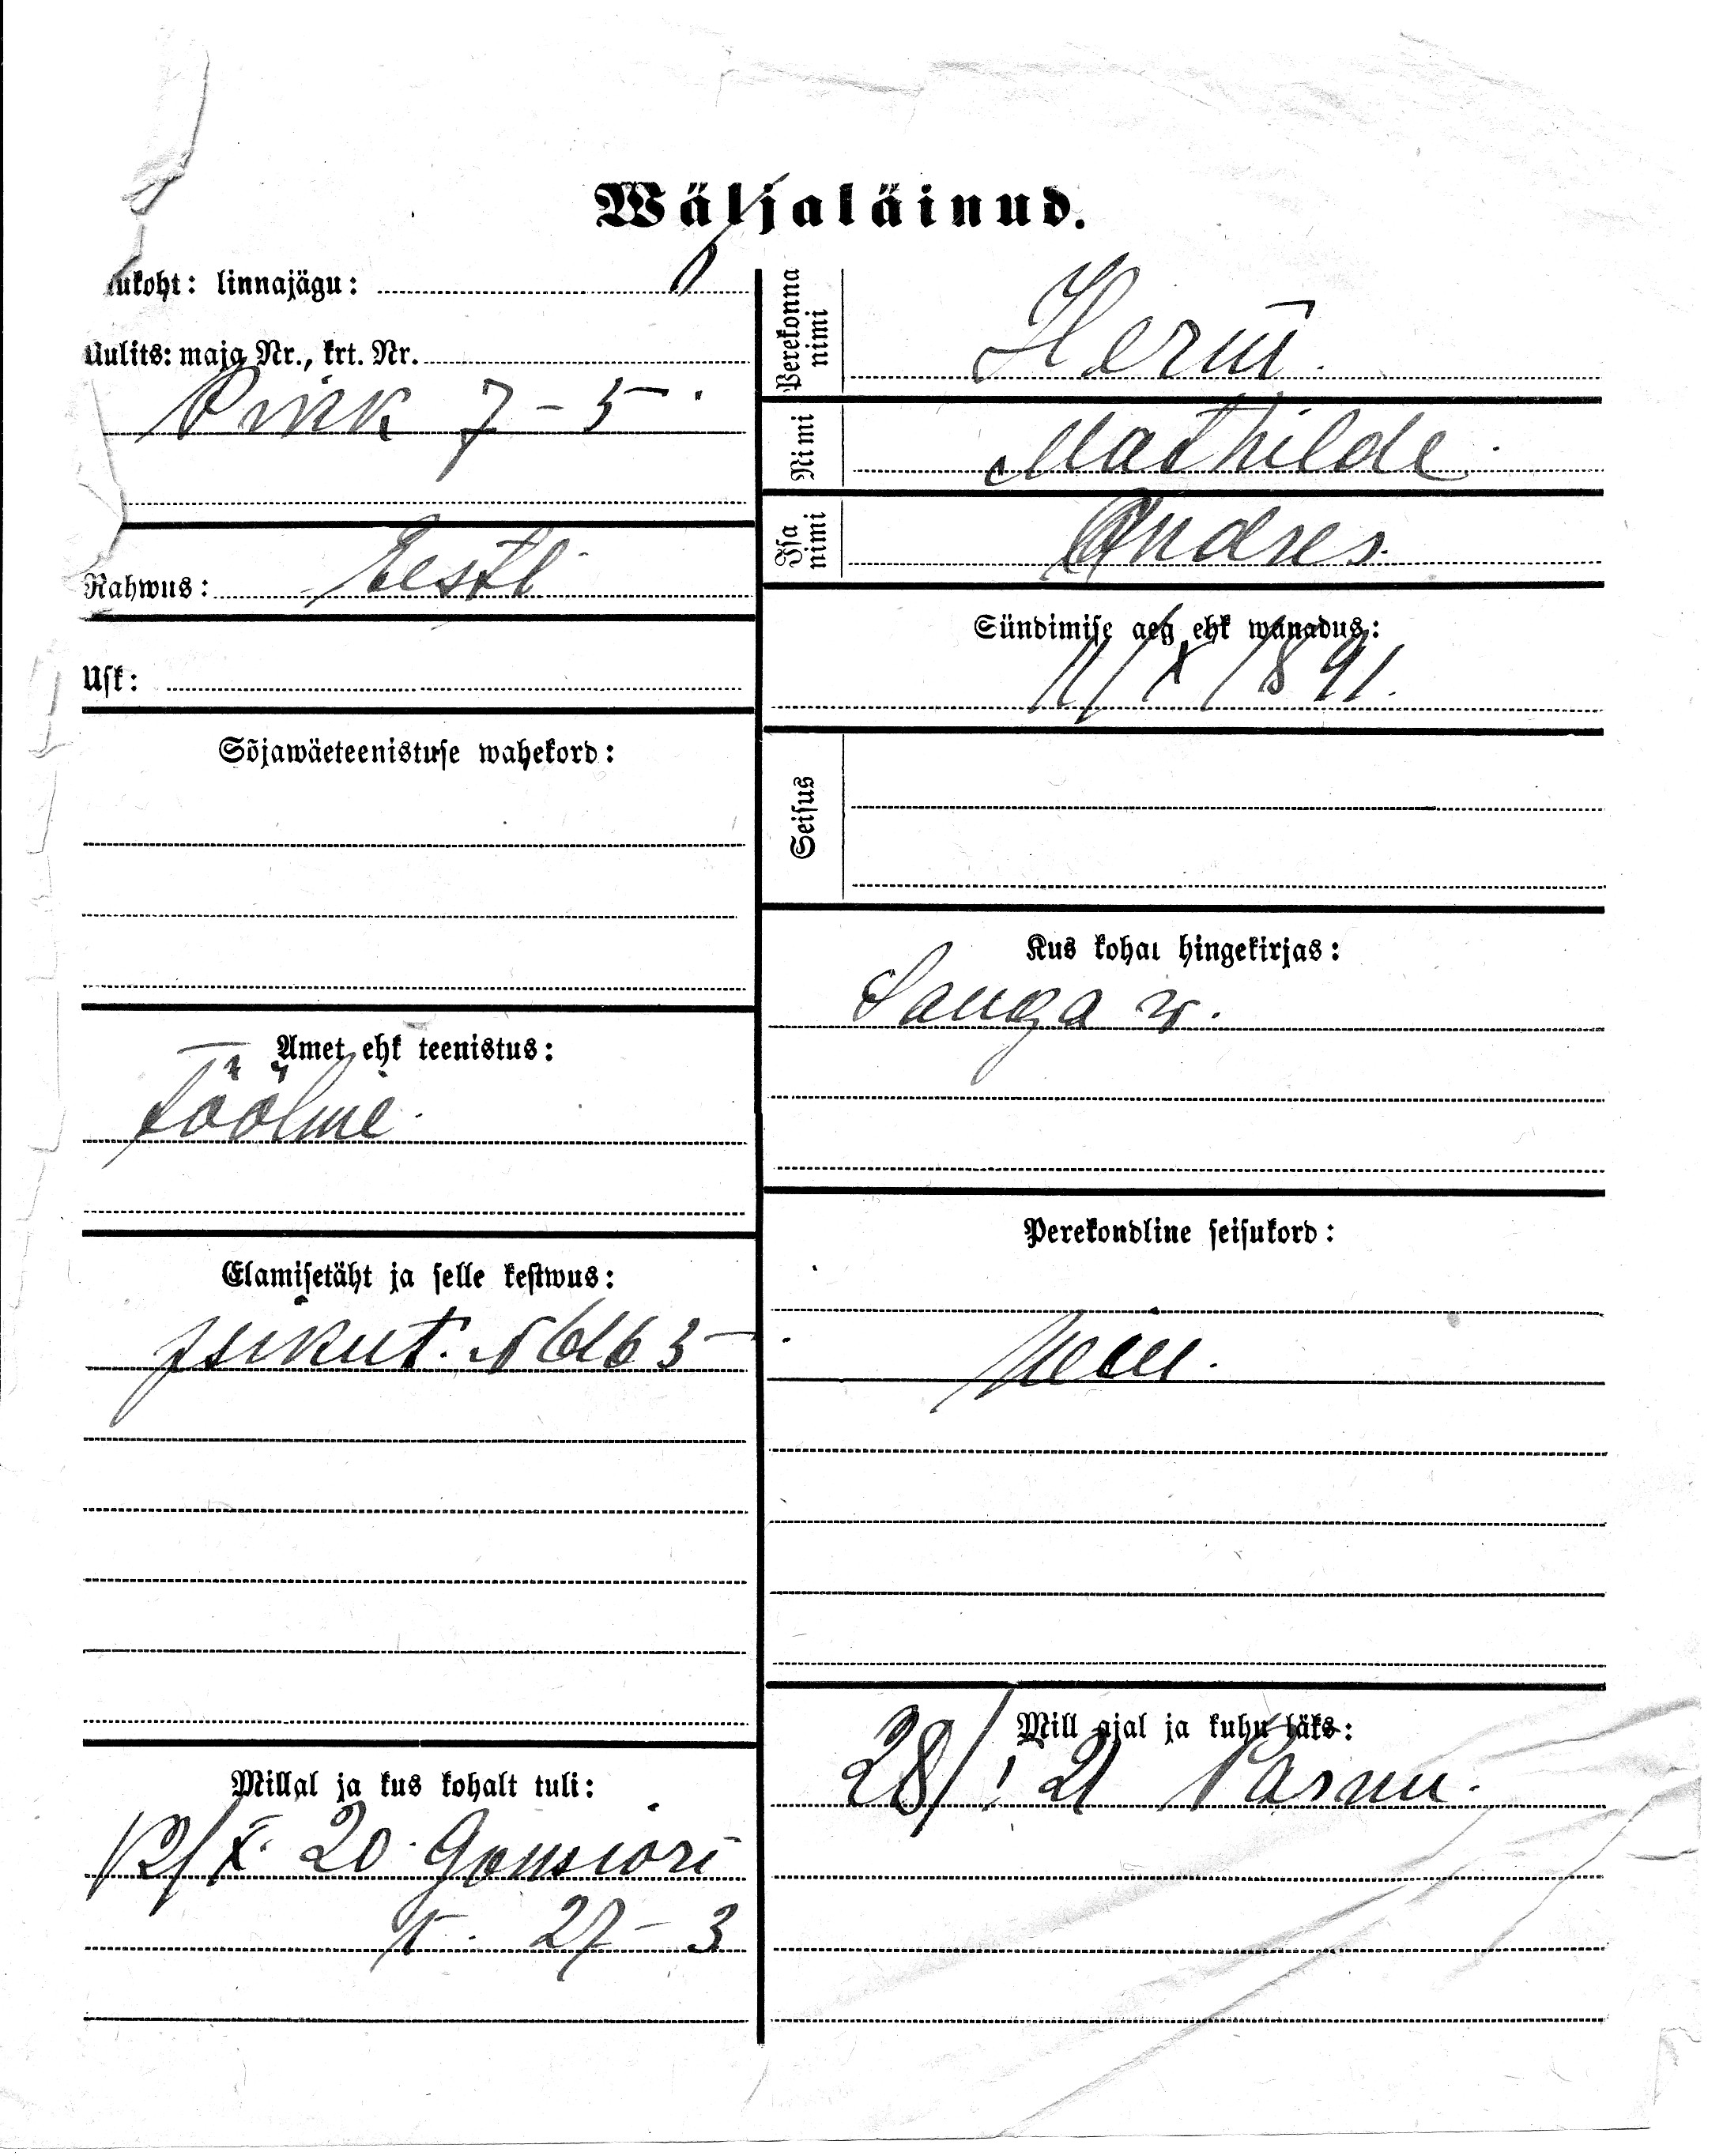 Wäljaläinud.
ukoht: linnajägu:
Uulits: maja Nr., krt. Nr.
Pikk 7-5.
Rahwus: Eesti
Usk:
Sõjawäeteenistuse wahekord:
Amet ehk teenistus:
Tööline.
Elamisetäht ja selle kestwus:
Isikut. N
Millal ja kus kohalt tuli:
12/X. 20. Gonsiori
t. 27-3
Perekonna nimi
Nimi Mathilde.
Isa nimi Andres.
Sündimise aeg ehk wanadus:
11/X 1891.
Seisus
Kus kohal hingekirjas:
Sauga w.
Perekondline seisukord:
Mill ajal ja kuhu läks:
28/I 21 Pärnu.